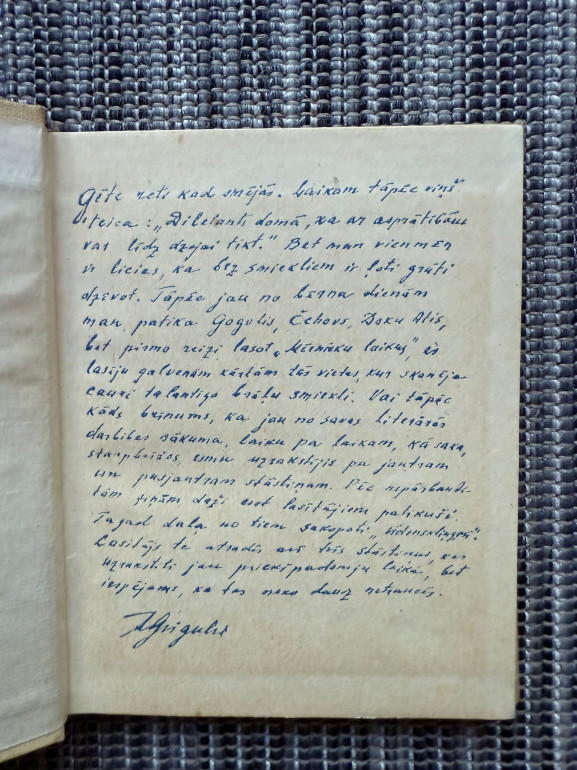 Gēte reti kad smējās. Laikam tāpēc viņš
teica: „Diletanti domā, ka ar asprātībām
var līdz dzejai tikt." Bet man vienmēr
ir licies, ka bez smiekliem ir ļoti grūti
dzīvot. Tāpēc jau no bērna dienām
man patika Gogolis, Čehovs, Doku Atis,
bet pirmo reizi lasot „Mērnieku laikus", es
lasīju galvenām kārtām tās vietas, kur skanēja
cauri talantīgo brāļu smiekli. Vai tāpēc
kāds brīnums, ka jau no savas literārās
darbības sākuma, laiku pa laikam, kā saka,
starpbrīžos, esmu uzrakstījis pa jautram
un pusjautram stāstiņam. Pēc nepārbaudī-
tām ziņām daži esot lasītājiem patikuši.
Tagad daļa no tiem sakopoti „
Lasītājs te atradīs arī trīs stāstiņus, kas
uzrakstīti jau priekšpadomju laikā, bet
iespējams, ka tas neko daudz netraucēs.
AGrigulis